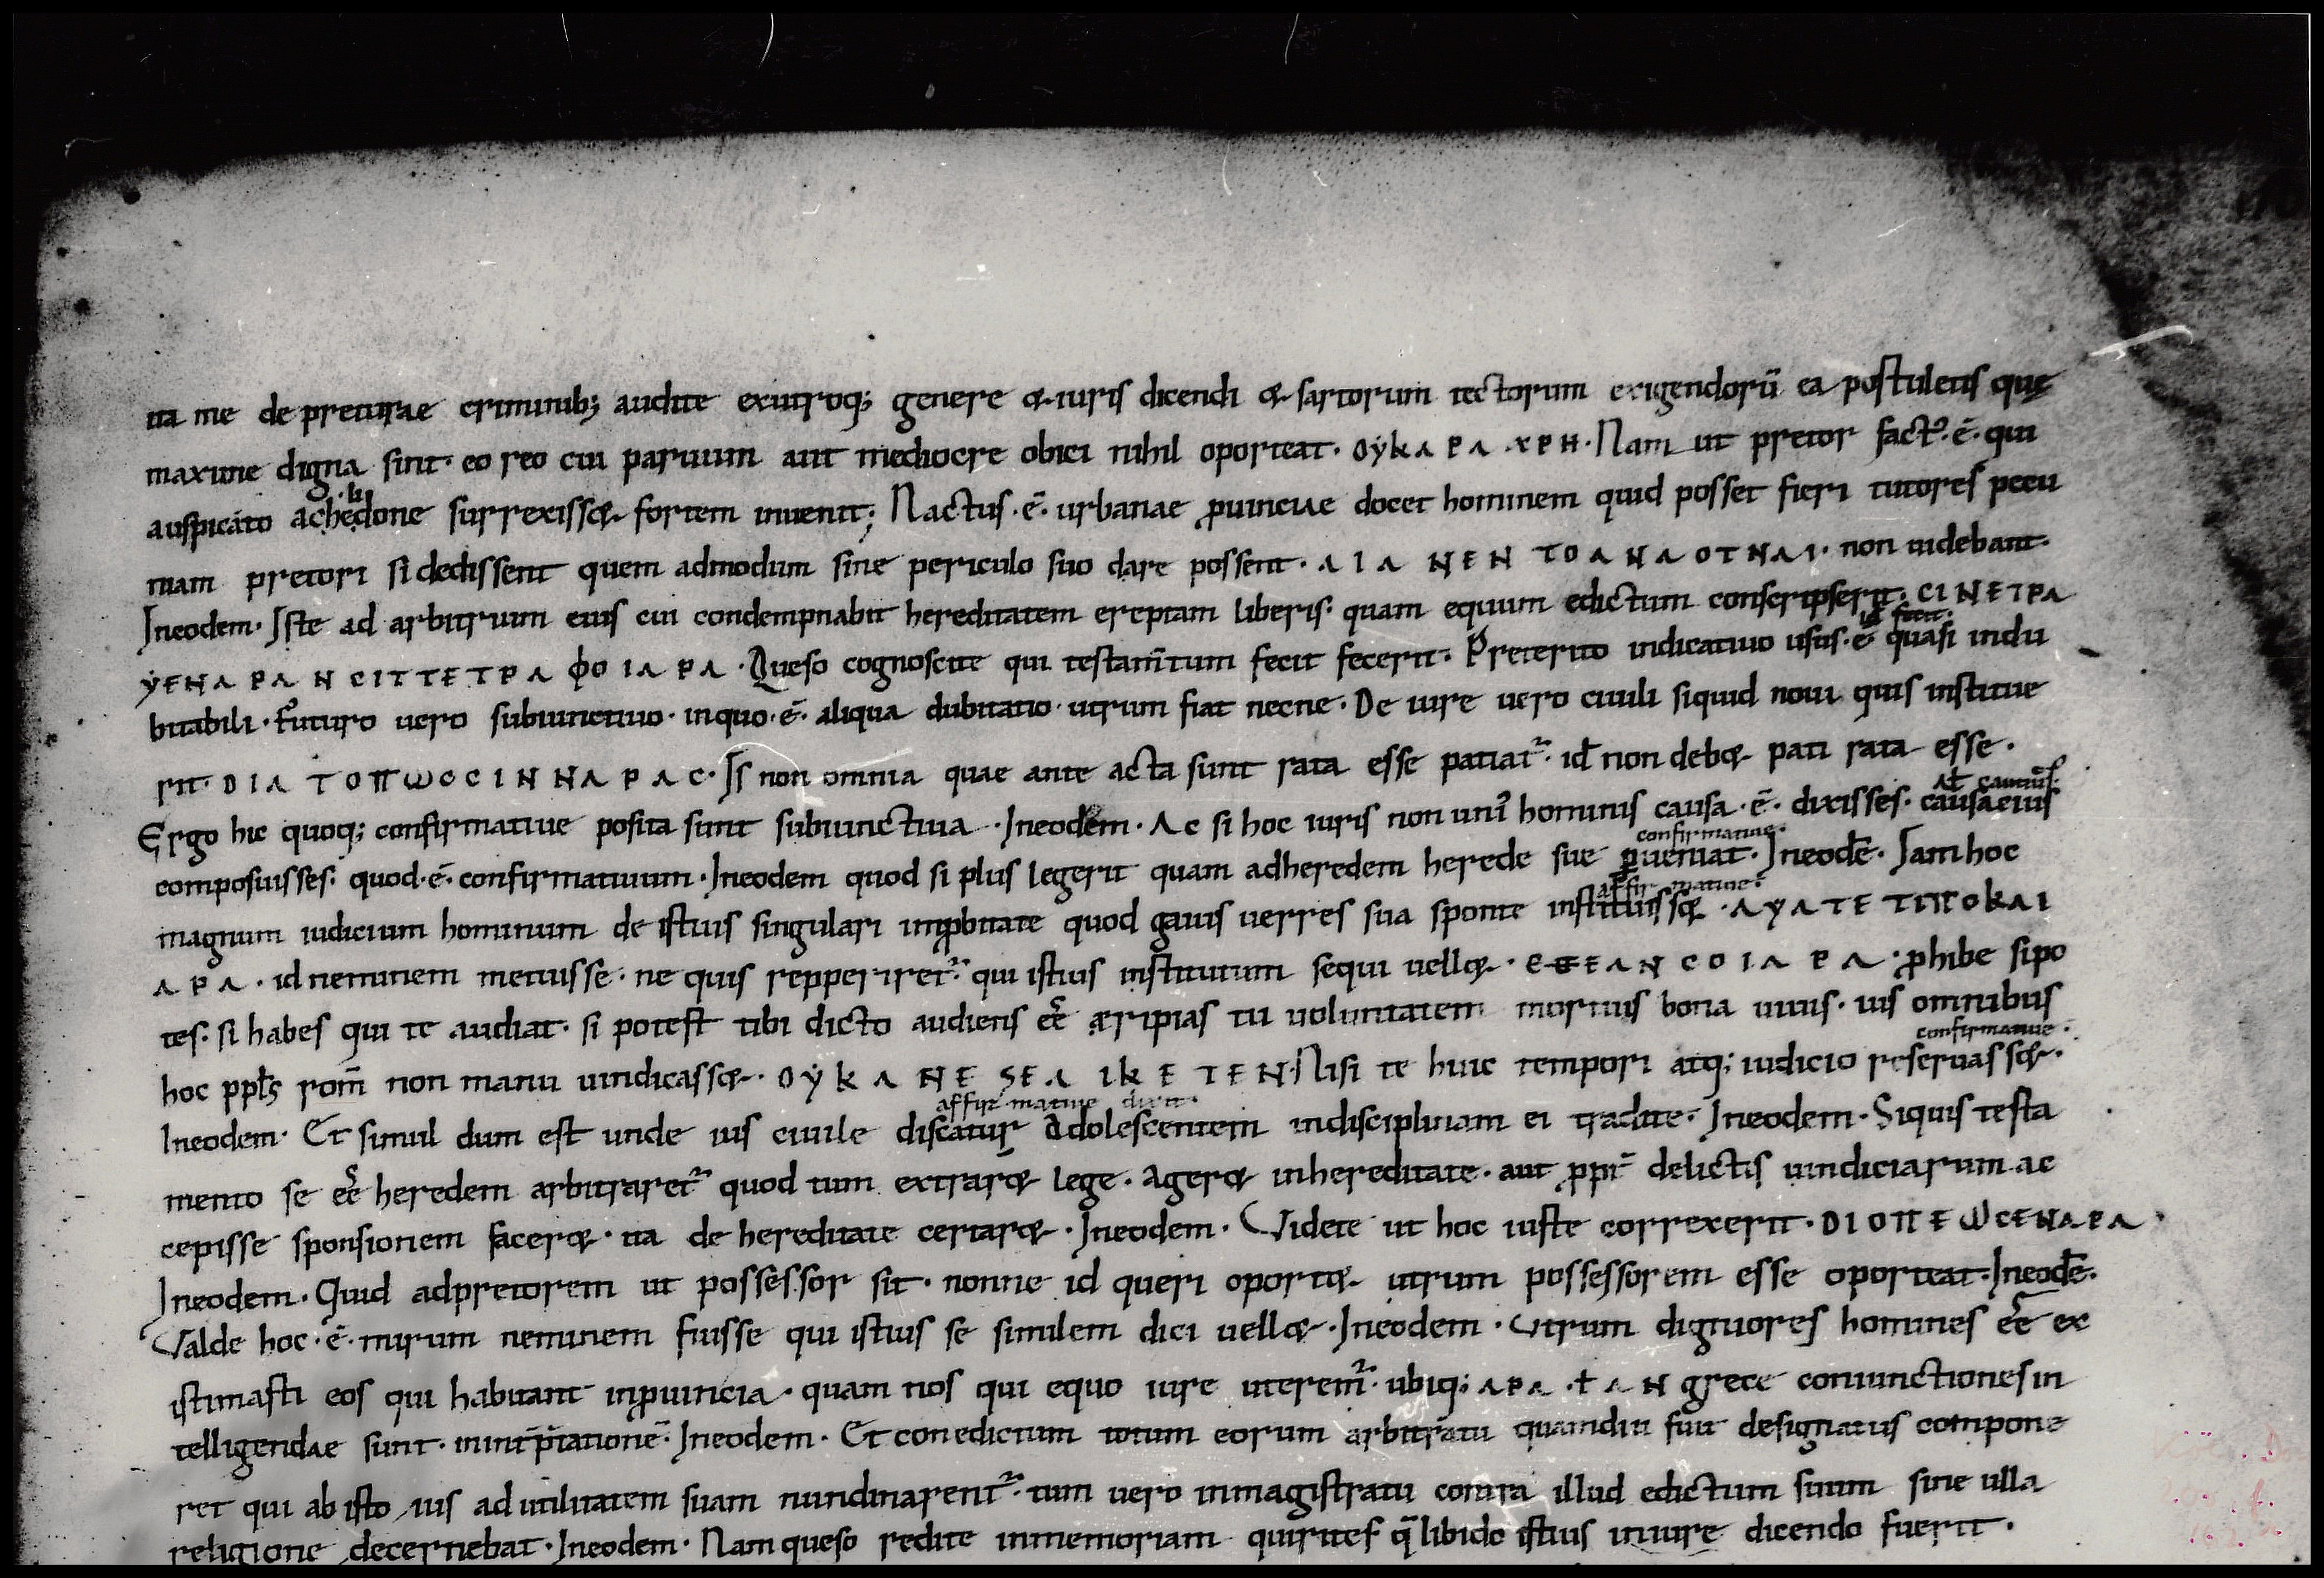 ita me de preturae criminib; audite ex utroq; genere & iuris dicendi & sartorum tectorum exigendorū ea postuletis que
maxime digna sint· eo reo cui paruum aut mediocre obici nihil oporteat· ΟΥΚΑΡΑ ΧΡΗ· Nam ut pretor fact᾽· ē· qui
auspicato achedone surrexiss& fortem inuenit; Nactus· ē· urbanae ꝓuinciae docet hominem quid posset fieri tutores pecu
niam pretori si dedissent quem admodum sine periculo suo dare possent· ΑΙΑ ΝΕΝ ΤΟΑΝΑΟΤΝΑΙ· non uidebant·
Ineodem· Iste ad arbitrium eius cui condempnabit hereditatem ereptam liberis· quam equum edictum conscripserit· CΙΝΕΤΡΑ
id fecit·
ΥΕΝΑΡΑΝ CΙΤΤΕΤΡΑΦΟΙΑΡΑ· Queso cognoscite qui testam̄tum fecit fecerit· Preterito indicatiuo usus· ē· quasi indu
bitabili· Futuro uero subiunctiuo· in quo· ē· aliqua dubitatio· utrum fiat necne· De iure uero ciuili siquid noui quis institue
rit· DΙΑ ΤΟΠωCCΙΝΝΑΡΑC· Is non omnia quae ante acta sunt rata esse patiat᷑· id̄ non deb& pati rata esse·
Ergo hic quoq; confirmatiue posita sunt subiunctiua· Ineodem· Ac si hoc iuris non uni᾽ hominis causa· ē· dixisses· causa eius
confirmatiue·
composuisses· quod· ē· confirmatiuum· Ineodem quod si plus legerit quam adheredem herede sue ꝑueniat· Ineodē· Iam hoc
affirmatiue·
magnum iudicium hominum de istius singulari imꝓbitate quod gauis uerres sua sponte instituiss&· ΑΥΑΤΕ ΤΙΠΟΚΑΙ
ΑΡΑ· id neminem metuisse· ne quis repperiret᷑· qui istius institutum sequi uell&· ΕΕΑΝCΟΙΑΡΑ· ꝓhibe sipo
tes· si habes qui te audiat· si potest tibi dicto audiens eē᷑ æripias tu uoluntatem mortuis bona uiuis· uis omnibus
confirmatiue·
hoc ppl̄s rom̄ non manu uindicass&· ΟΥΚΑΝΕ SΕΑ ΙΚΕΤΕΝ· Nisi te huic tempori atq; iudicio reseruass&·
affirmatiue dixit·
Ineodem· Et simul dum est unde ius ciuile discatur adolescentem indisciplinam ei tradite· Ineodem· Siquis testa
mento se eē᷑ heredem arbitraret᷑ quod tum extrar& lege· ager& inhereditate· aut ꝓpt̄ delictis uindiciarum ac
cepisse sponsionem facer&· ita de hereditate certar&· Ineodem· Videte ut hoc iuste correxerit· DΙΟΠΕωCΕΝΑΡΑ·
Ineodem· Quid adpretorem ut possessor sit· nonne id queri oport& utrum possessorem esse oporteat· Ineodē·
Valde hoc· ē· mirum neminem fuisse qui istius se similem dici uell&· Ineodem· Utrum digniores homines eē᷑ ex
istimasti eos qui habitant inꝓuincia· quam nos qui equo iure uterem᷑· ubiq; ΑΡΑ· ΤΑΝ grece coniunctiones in
telligendae sunt· inint̄p̄tationē· Ineodem· Et con edictum totum eorum arbitratu quamdiu fuit designatus compone
ret qui ab isto ius ad utilitatem suam nundinarent᷑· tum uero inmagistratu contra illud edictum suum sine ulla
religione decernebat· Ineodem· Nam queso redite inmemoriam quirites q̄ libido istius iniure dicendo fuerit·